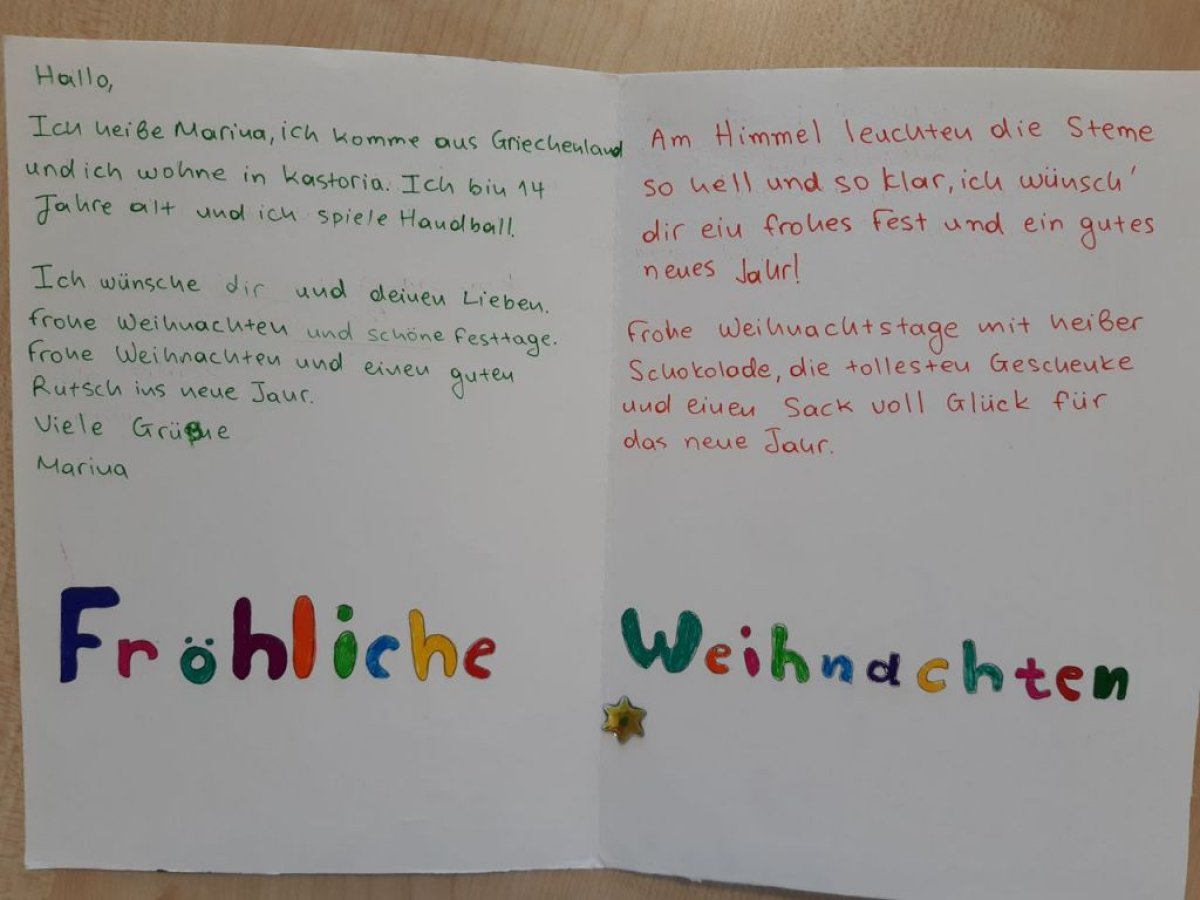 Hallo,
Ich heiße Marina, ich komme aus Griechenland
und ich wohne in Kastoria. Ich bin 14
Jahre alt und ich spiele Handball.
Ich wünsche dir und deinen Lieben.
frohe Weihnachten und schöne Festtage.
Frohe Weihnachten und einen guten
Rutsch ins neue Jahr.
Viele Grüße
Marina
Am Himmel leuchten die Sterne
so hell und so klar, ich wünsch'
dir ein frohes Fest und ein gutes
neues Jahr!
Frohe Weihnachtstage mit heißer
Schokolade, die tollesten Geschenke
und einen Sack voll Glück für
das neue Jahr.
Fröhliche Weihnachten